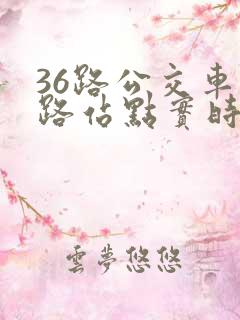 36路公交車
路佔點實時
雲夢悠悠